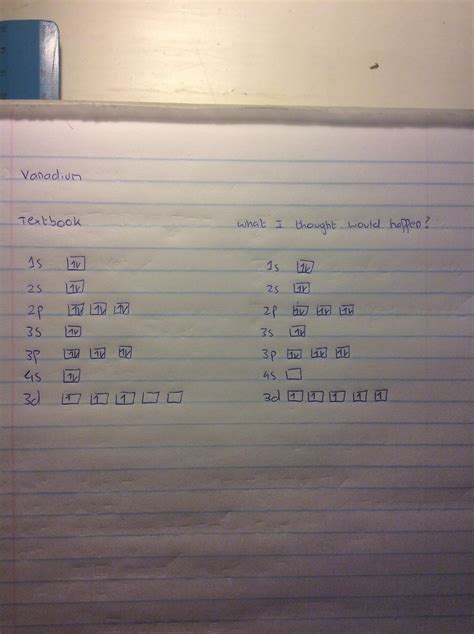 Vanadium
Textbook what I thought would happen?
1s 1s
2s 2s
2p 2p
3s 3s
3p 3p
4s 4s
3d 3d